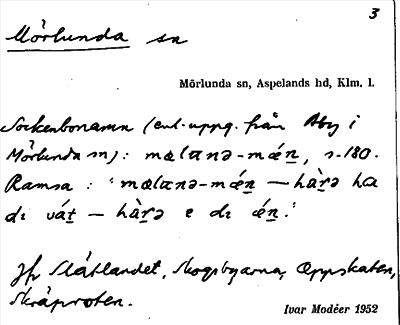 3
Mörlunda sn
Mörlunda sn, Aspelands hd, Klm. l.
Sockenbonamn (enl. uppg. från Åby i
Mörlunda sn): mælɑnə-mǽn̲, s. 180.
Ramsa: "mælɑnə-mǽn̲ — hàr̲ə ha
dɩ vát̲ — hàr̲ə e dɩ ǽn̲."
Jfr Slättlandet, Skogsbyarna, Oppskaten,
Skräproten.
Ivar Modéer 1952